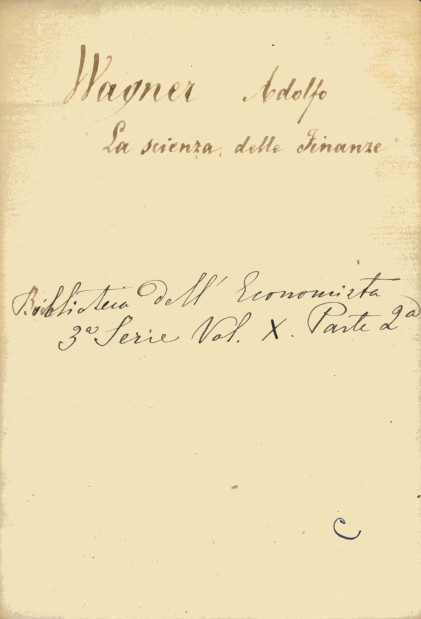 Wagner Adolfo
La scienza delle Finanze
Biblioteca dell' Economista
3ª Serie Vol. X. Parte 2ª
C